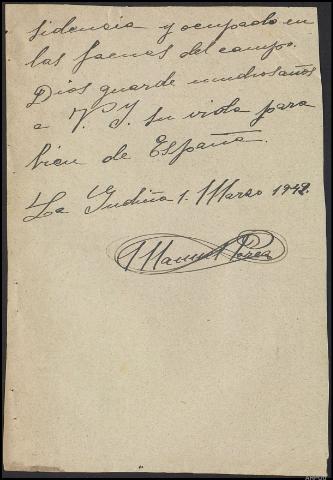 sidencia y ocupado en
las faenas del campo.
Dios guarde muchos años
a V. I. su vida para
bien de España.
La Gudiña 1. Marzo 1942.
Manuel Perea